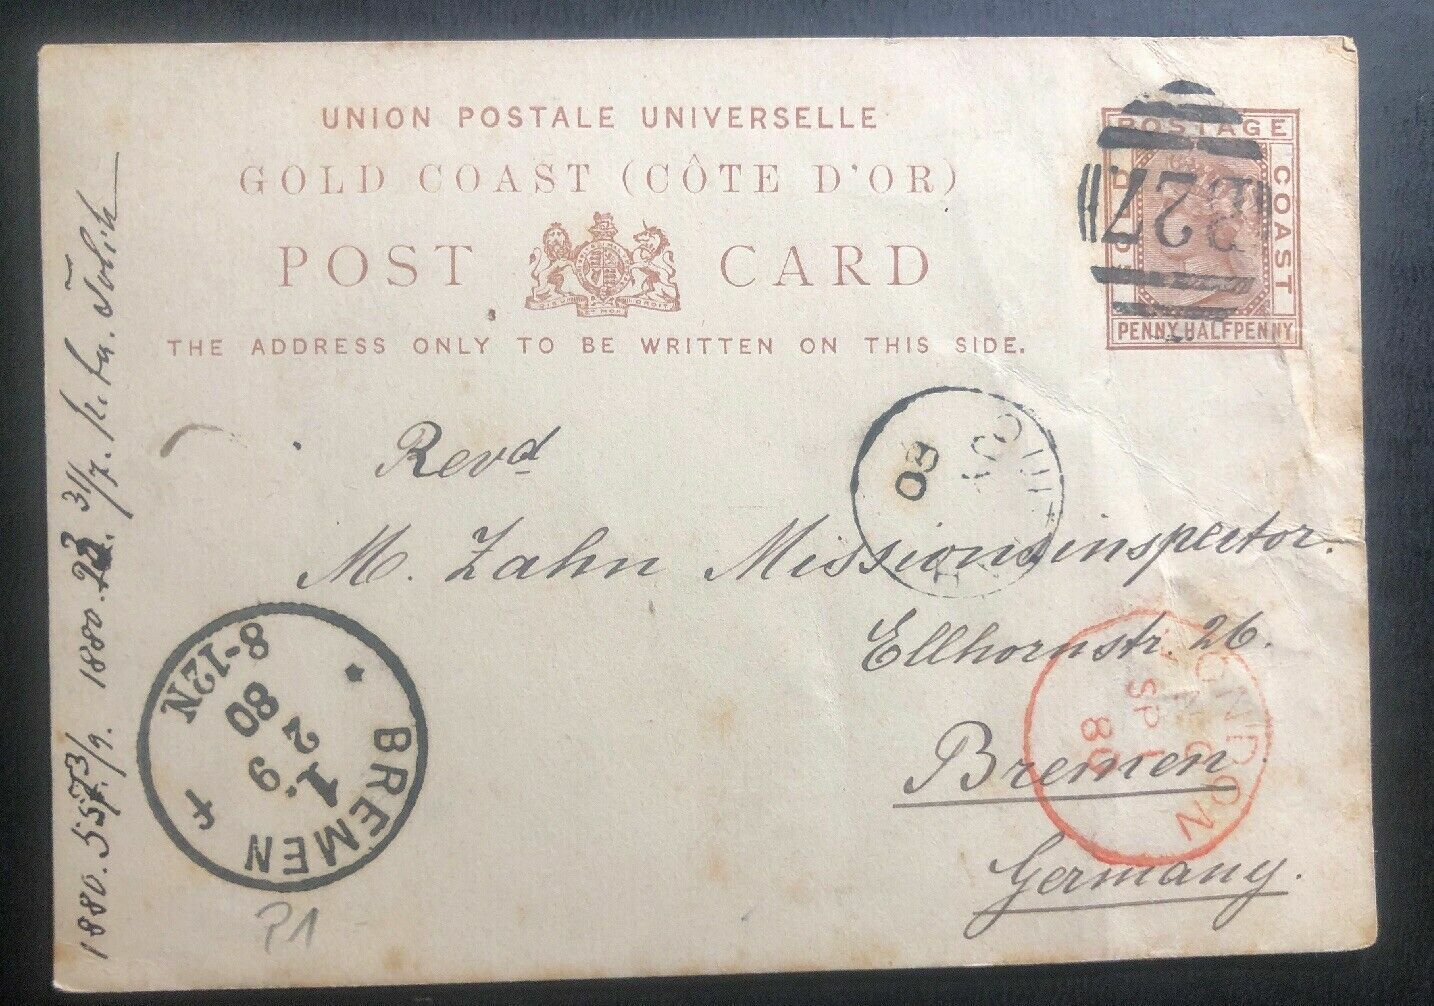 UNION POSTALE UNIVERSELLE
GOLD COAST (CÔTE D'OR)
POST CARD
THE ADDRESS ONLY TO BE WRITTEN ON THIS SIDE.
POSTAGE
GOLD COAST
PENNY.HALFPENNY
Revd
M. Zahn Missionsinspector.
Ellhornstr. 26.
Bremen.
Germany.
80
LONDON
SP 1
80
BREMEN
8-12N
80
2 9
1.
P1
1880.
1880.